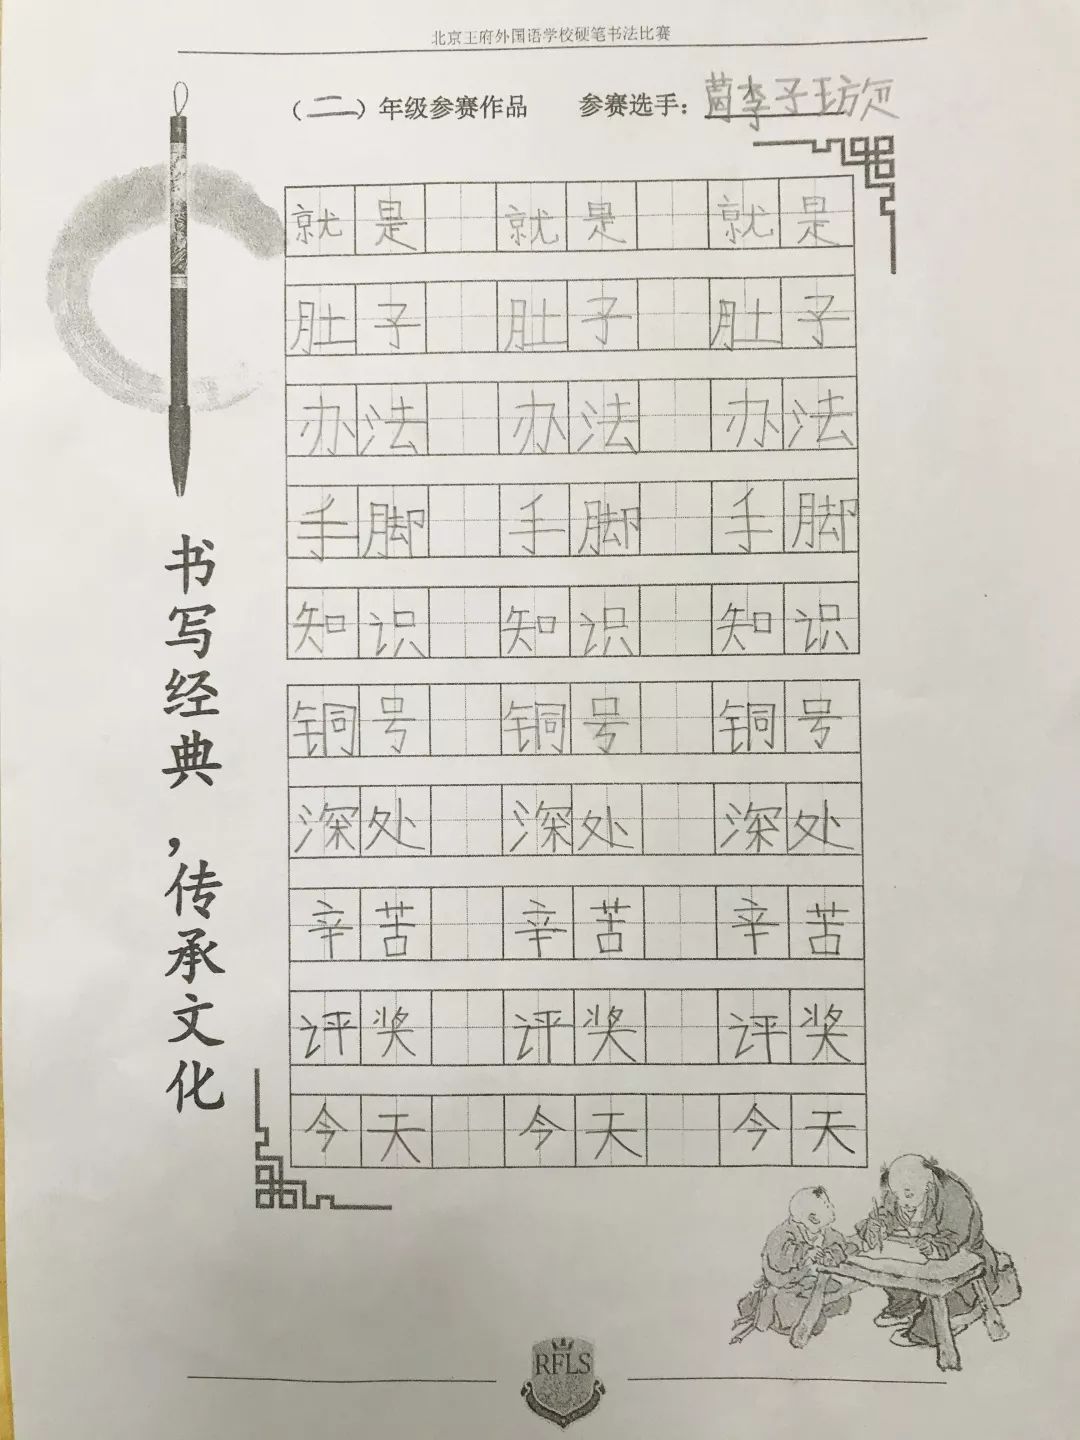 北京王府外国语学校硬笔书法比赛
（二）年级参赛作品 参赛选手：李子
就是 就是 就是
肚子 肚子 肚子
办法 办法 办法
手脚 手脚 手脚
知识 知识 知识
铜号 铜号 铜号
深处 深处 深处
辛苦 辛苦 辛苦
评奖 评奖 评奖
今天 今天 今天
书写经典，传承文化
RFLS